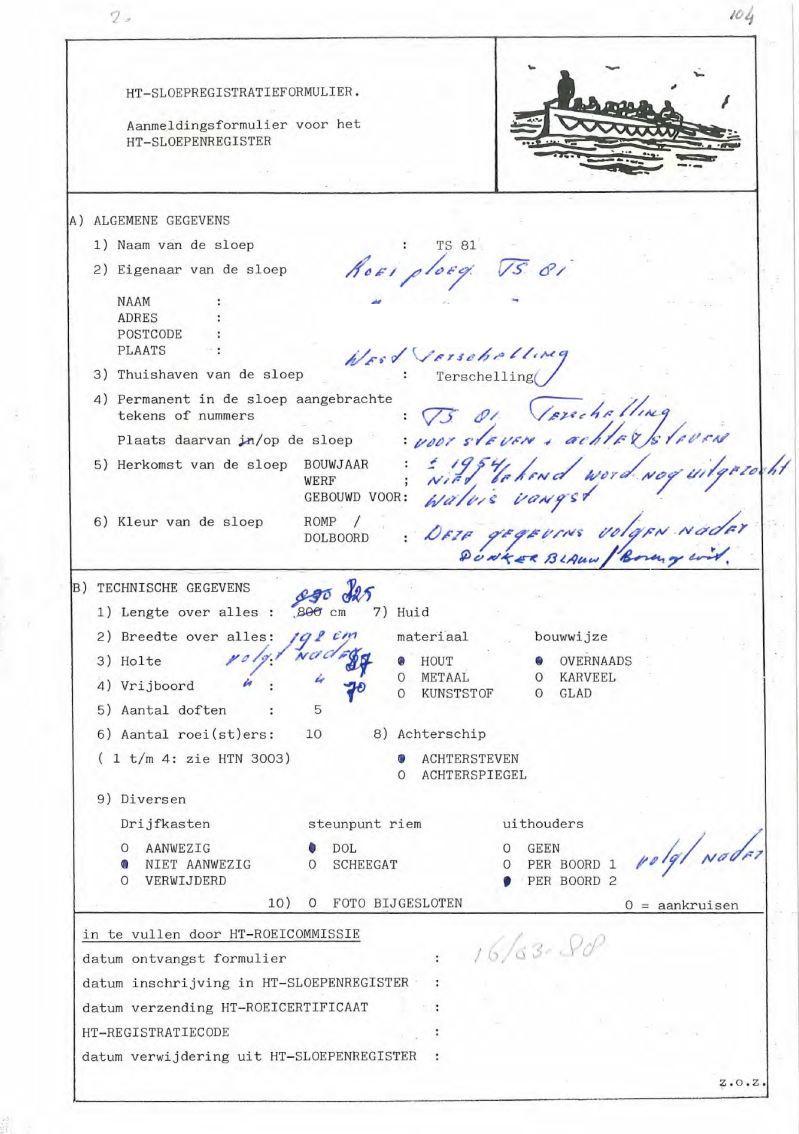 2.
104
HT-SLOEPREGISTRATIEFORMULIER.
Aanmeldingsformulier voor het
HT-SLOEPENREGISTER
A) ALGEMENE GEGEVENS
1) Naam van de sloep : TS 81
2) Eigenaar van de sloep Roei ploeg TS 81
NAAM : " "
ADRES :
POSTCODE :
PLAATS : West Terschelling
3) Thuishaven van de sloep : Terschelling
4) Permanent in de sloep aangebrachte
tekens of nummers : TS 81 Terschelling
Plaats daarvan in/op de sloep : voor steven + achter steven
5) Herkomst van de sloep BOUWJAAR : ± 1954
WERF ; Niet bekend word nog uitgezocht
GEBOUWD VOOR: walvis vangst
6) Kleur van de sloep ROMP /
DOLBOORD : Deze gegevens volgen nader
DONKER BLAUW / Boven op wit.
B) TECHNISCHE GEGEVENS
1) Lengte over alles : 800 cm 825
2) Breedte over alles: 198 cm
3) Holte : volgt nader 87
4) Vrijboord " : " 70
5) Aantal doften : 5
6) Aantal roei(st)ers: 10
( 1 t/m 4: zie HTN 3003)
7) Huid
materiaal bouwwijze
HOUT OVERNAADS
O METAAL O KARVEEL
O KUNSTSTOF O GLAD
8) Achterschip
ACHTERSTEVEN
O ACHTERSPIEGEL
9) Diversen
Drijfkasten steunpunt riem uithouders
O AANWEZIG DOL O GEEN
NIET AANWEZIG O SCHEEGAT O PER BOORD 1 volgt nader
O VERWIJDERD PER BOORD 2
10) O FOTO BIJGESLOTEN O = aankruisen
in te vullen door HT-ROEICOMMISSIE
datum ontvangst formulier : 16/03-88
datum inschrijving in HT-SLOEPENREGISTER :
datum verzending HT-ROEICERTIFICAAT :
HT-REGISTRATIECODE :
datum verwijdering uit HT-SLOEPENREGISTER :
z.o.z.